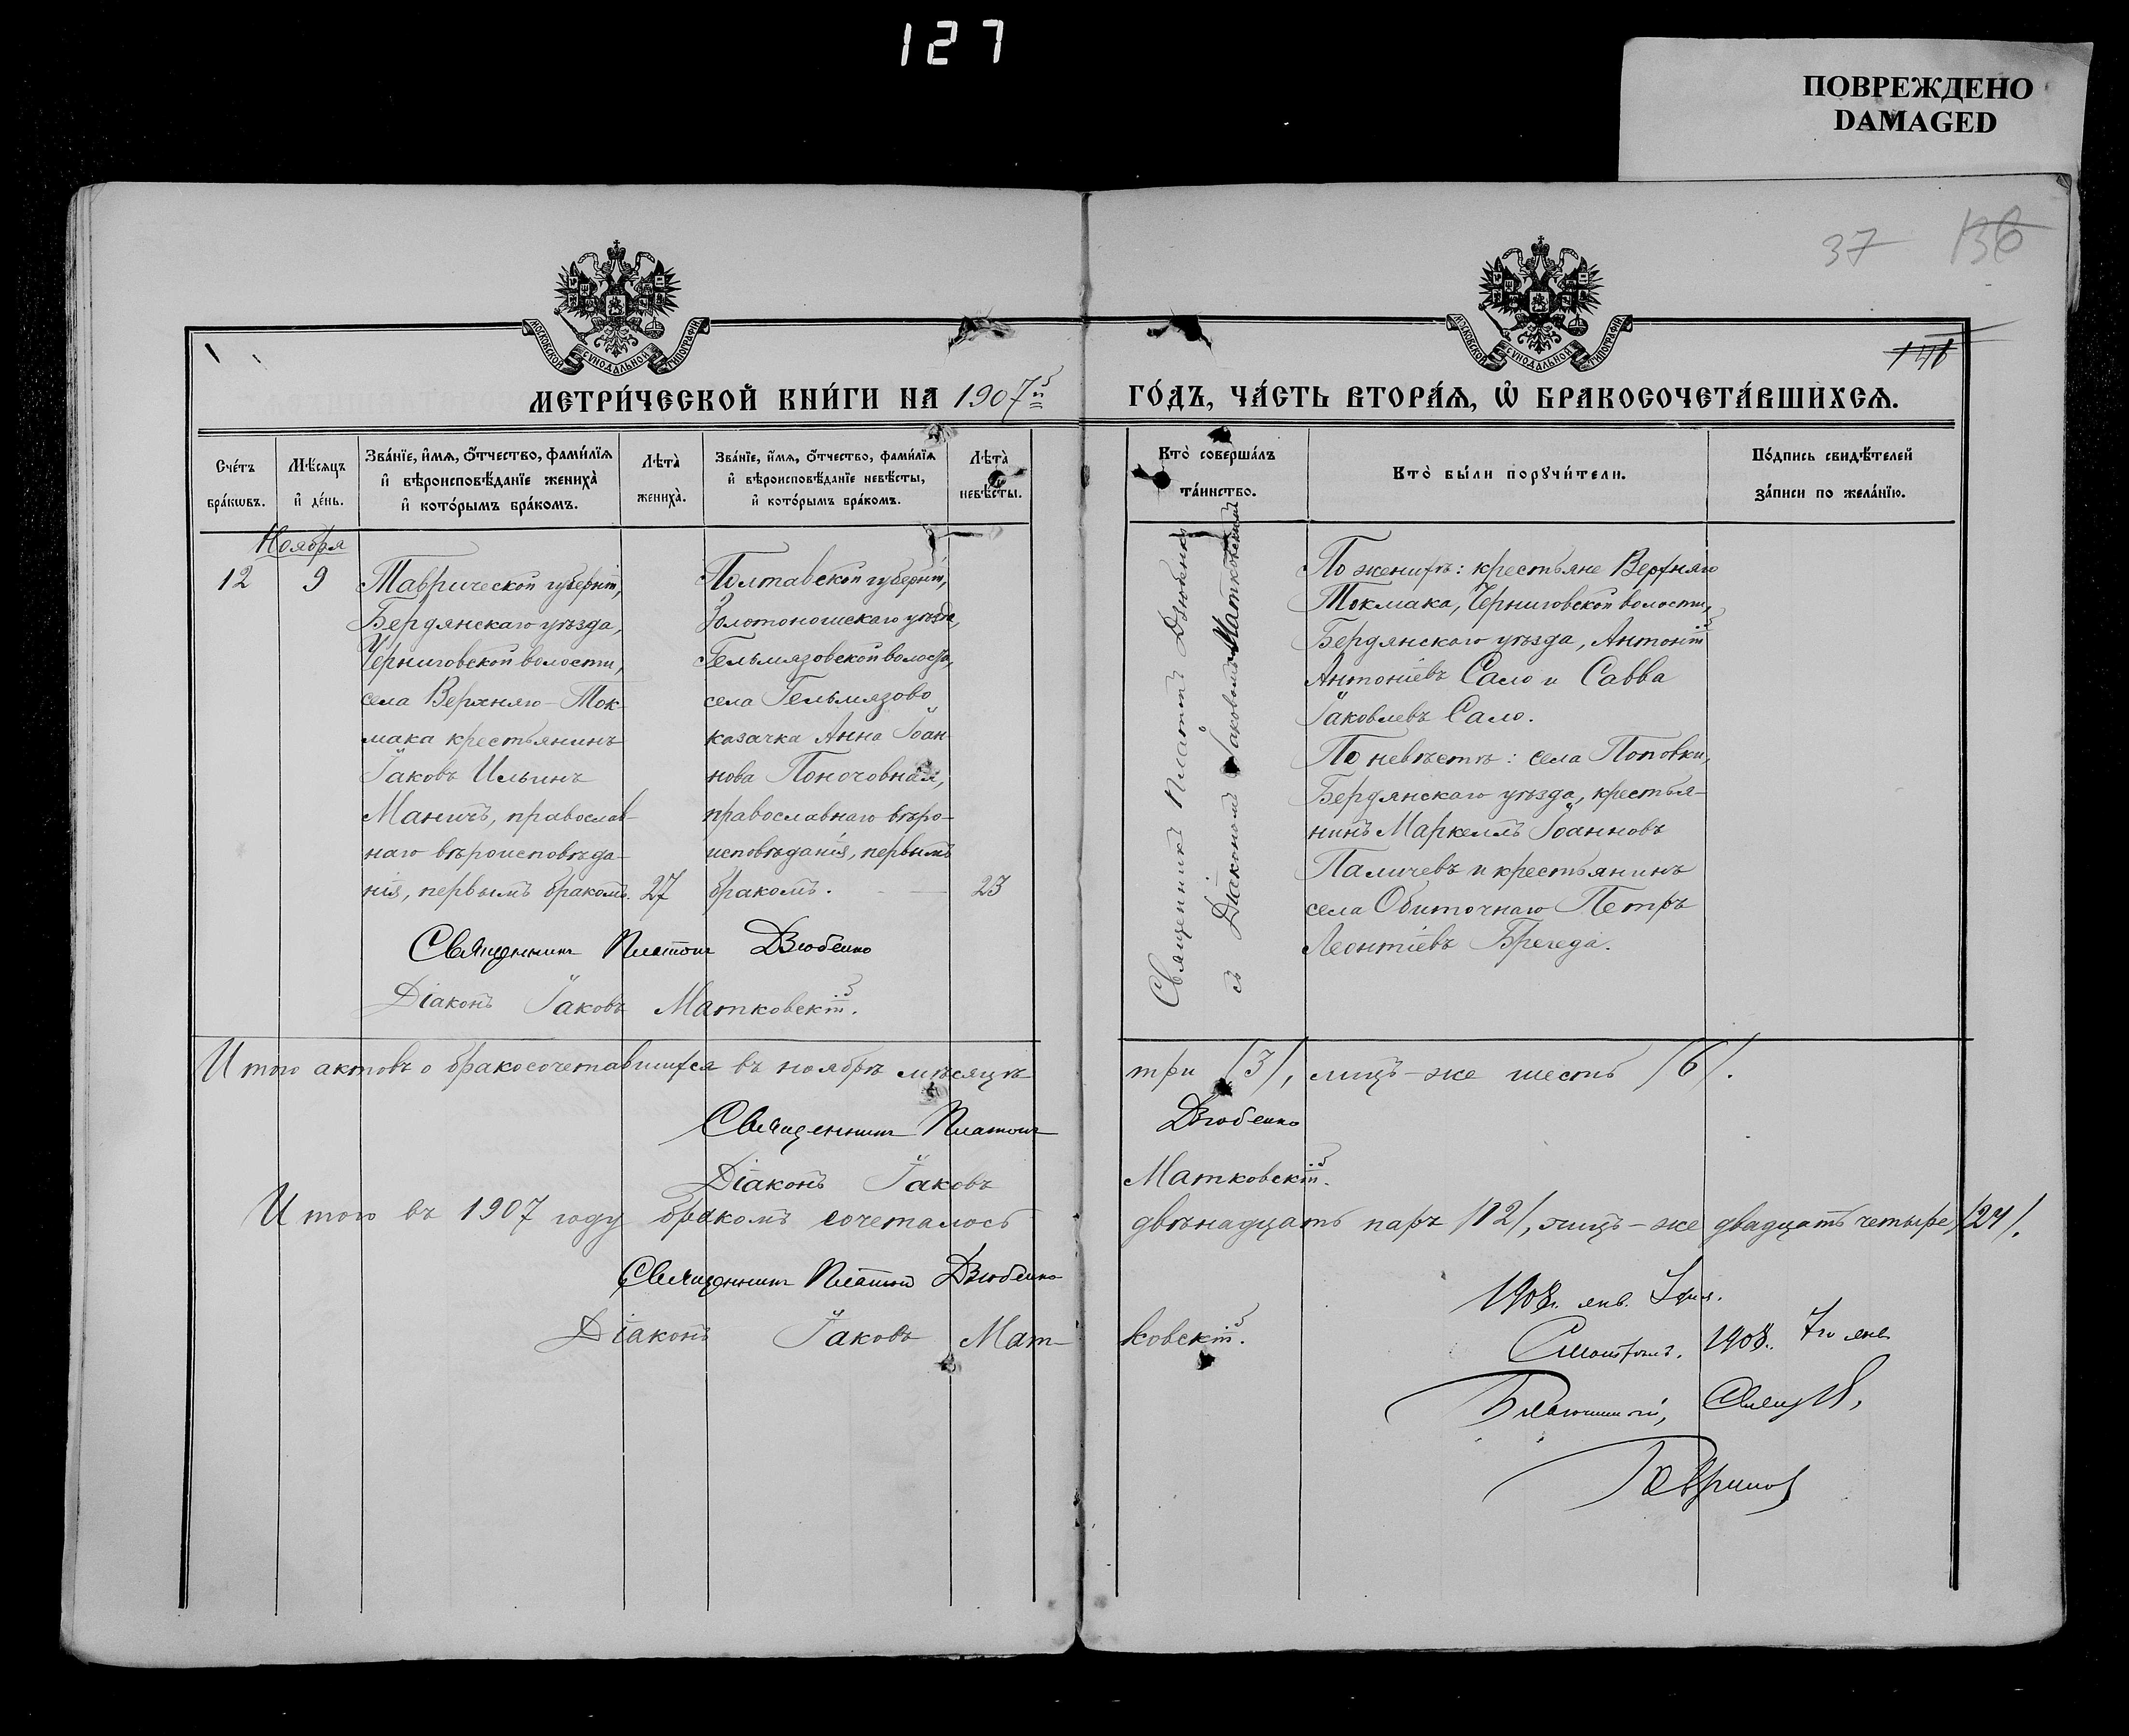 127
ПОВРЕЖДЕНО
DAMAGED
37 136
МОСКОВСКОЙ СѴНОДАЛЬНОЙ ТИПОГРАФІИ
МОСКОВСКОЙ СѴНОДАЛЬНОЙ ТИПОГРАФІИ
МЕТРИ́ЧЕСКОЙ КНИ́ГИ НА 1907й ГО́ДЪ, ЧА́СТЬ ВТОРА́Ѧ, Ѡ҆ БРАКОСОЧЕТА́ВШИХСѦ.
Сче́тъ бра́кѡвъ.
Мѣ́сяцъ и҆ де́нь.
Зва́нїе, и҆́мѧ, ѻ҆́тчество, фами́лїѧ
и҆ вѣроисповѣ́данїе жениха̀
и҆ кото́рымъ бра́комъ.
Лѣта̀ жениха̀.
Зва́нїе, и҆́мѧ, ѻ҆́тчество, фами́лїѧ
и҆ вѣроисповѣ́данїе невѣ́сты,
и҆ кото́рымъ бра́комъ.
Лѣта̀ невѣ́сты.
Кто̀ соверша́лъ
та́инство.
Кто̀ бы́ли порꙋчи́тели.
По́дпись свидѣ́телей
за́писи по жела́нїю.
Ноября
12 9
Таврической губерніи,
Бердянскаго уѣзда,
Черниговской волости,
села Верхняго-Ток-
мака крестьянинъ
Іаковъ Ильинъ
Маничъ, православ-
наго вѣроисповѣда-
нія, первымъ бракомъ. 27
Полтавской губерніи,
Золотоношскаго уѣзда,
Гельмязовской волости,
села Гельмязово
казачка Анна Іоан-
нова Поночовная,
православнаго вѣро-
исповѣданія, первымъ
бракомъ. 23
Священникъ Платонъ Дзюбенко
Діаконъ Іаковъ Матковскій.
Священникъ Платонъ Дзюбенко
съ Діакономъ Іаковомъ Матковскимъ
По женихѣ: крестьяне Верхняго
Токмака, Черниговской волости,
Бердянскаго уѣзда, Антоній
Антоніевъ Сало и Савва
Іаковлевъ Сало.
По невѣстѣ: села Поповки,
Бердянскаго уѣзда, крестья-
нинъ Маркеллъ Іоанновъ
Паличевъ и крестьянинъ
села Обиточнаго Петръ
Леонтіевъ Брегеда.
Итого актовъ о бракосочетавшихся въ ноябрѣ мѣсяцѣ три /3/, лицъ-же шесть /6/.
Священникъ Платонъ Дзюбенко
Діаконъ Іаковъ Матковскій.
Итого въ 1907 году бракомъ сочеталось двѣнадцать паръ /12/, лицъ-же двадцать четыре /24/.
Священникъ Платонъ Дзюбенко
Діаконъ Іаковъ Матковскій.
1908. янв. 7 дня.
Смотрѣлъ. 1908. 7го янв
Благочинный, Свящ.